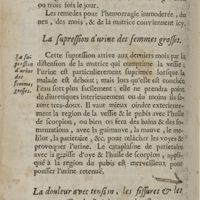 ou trois fois le jour.
Les remedes pour l'hemorragie immoderée, du
nez, des mois, & de la matrice conviennent icy.
La supression d'urine des femmes grosses.
La su-
pression
d'urine
des
femmes
grosses.
Cette supression arrive aux derniers mois par la
distension de la matrice qui comprime la vessie :
l'urine est particulierement suprimée lorsque la
malade est debout ; mais lors qu'elle est couchée
l'eau sort plus facilement ; elle ne prendra point
de diuretiques interieurement ou du moins ils se-
ront tres-doux. Il vaut mieux oindre exterieure-
ment la region de la vessie & le pubis avec l'huile
de scorpion, ou bien on fera des bains & des fo-
mentations, avec la guimauve, la mauve, le me-
lilot, la parietaire, &c. pour relâcher les voyes &
provoquer l'urine. Le cataplasme de parietaire
avec la graisse d'oye & l'huile de scorpion, appli-
qué à la region du pubis est merveilleux pour
pousser l'urine retenuë.
La douleur avec tension, les fissures & les